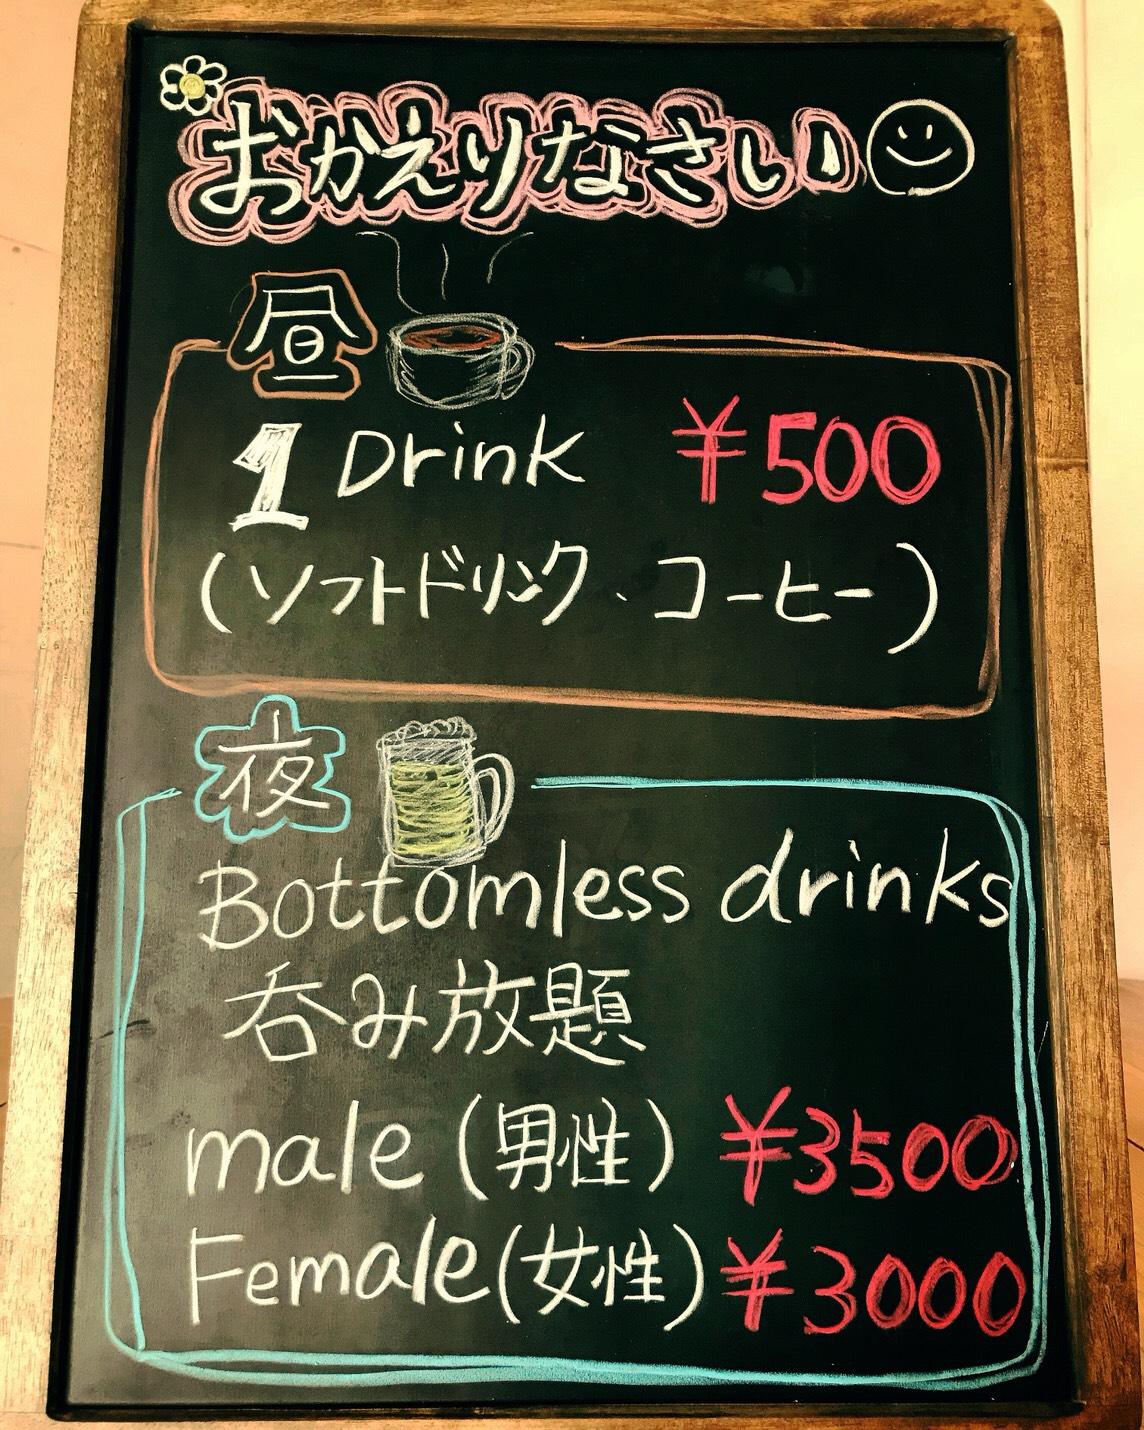 おかえりなさい
昼
1 Drink ¥500
(ソフトドリンク、コーヒー)
夜
Bottomless drinks
呑み放題
male (男性) ¥3500
Female (女性) ¥3000